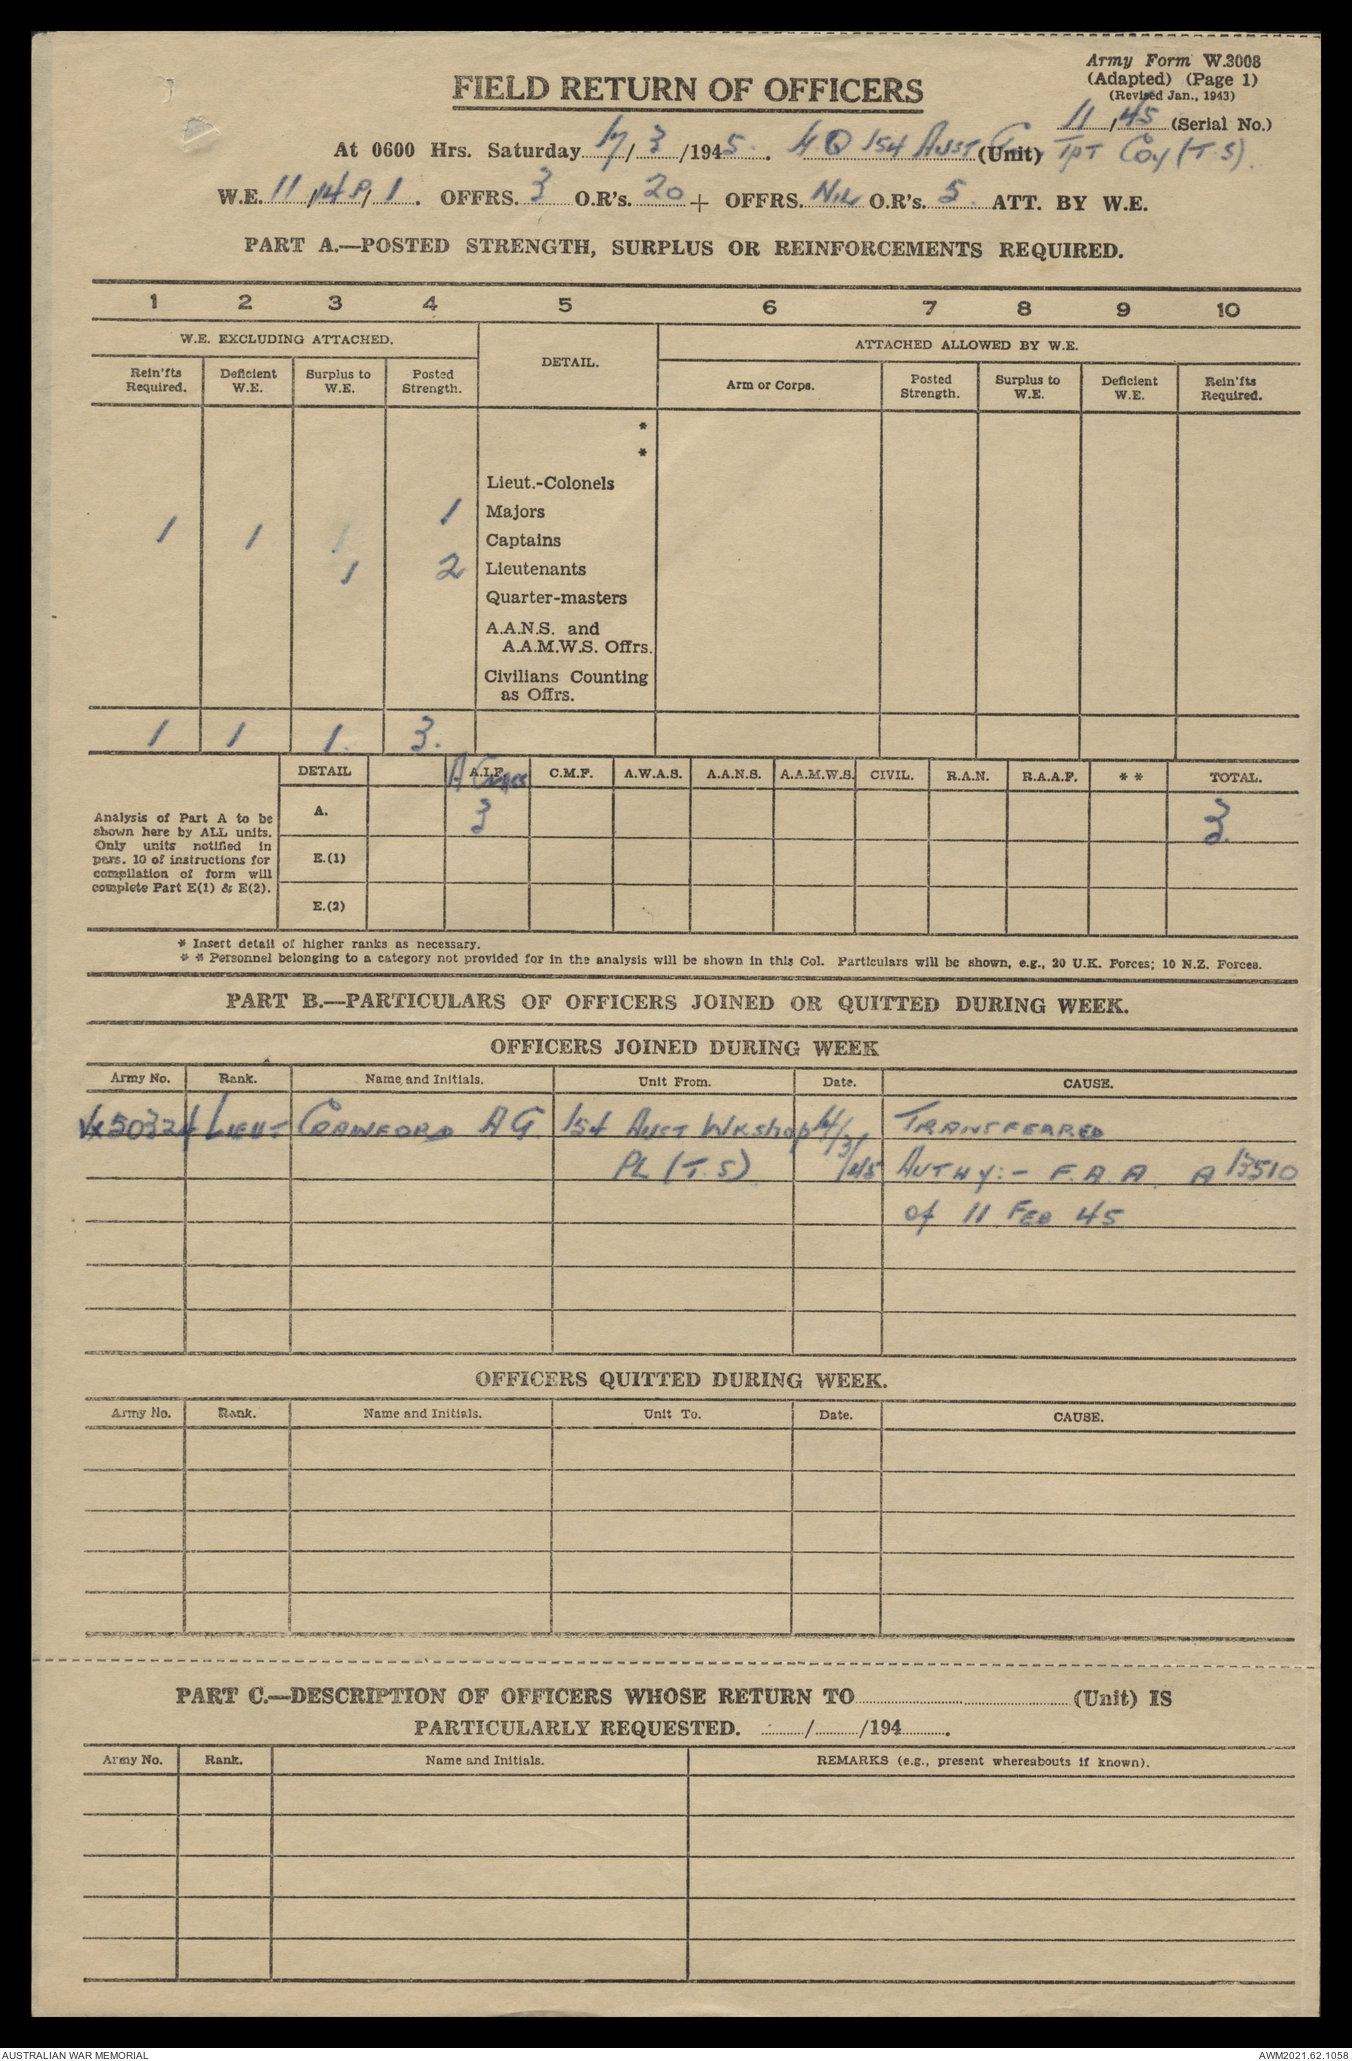 Army Form W.3008
(Adapted) (Page 1)
(Revised Jan., 1943)
FIELD RETURN OF OFFICERS
11/45 (Serial No.)
At 0600 Hrs. Saturday 17/3/1945. HQ 154 AUST G (Unit) TPT COY (T.S).
W.E. 11/14P/1. OFFRS. 3 O.R's. 20 + OFFRS. NIL O.R's. 5. ATT. BY W.E.
PART A.—POSTED STRENGTH, SURPLUS OR REINFORCEMENTS REQUIRED.
1 2 3 4 5 6 7 8 9 10
W.E. EXCLUDING ATTACHED. DETAIL. ATTACHED ALLOWED BY W.E.
Rein'fts Required. Deficient W.E. Surplus to W.E. Posted Strength. Arm or Corps. Posted Strength. Surplus to W.E. Deficient W.E. Rein'fts Required.
*
*
Lieut.-Colonels
1 Majors
1 1 1 Captains
1 2 Lieutenants
Quarter-masters
A.A.N.S. and
A.A.M.W.S. Offrs.
Civilians Counting
as Offrs.
1 1 1. 3.
DETAIL A.I.F. C.M.F. A.W.A.S. A.A.N.S. A.A.M.W.S. CIVIL. R.A.N. R.A.A.F. * * TOTAL.
A. 3 3.
Analysis of Part A to be
shown here by ALL units.
Only units notified in
para. 10 of instructions for
compilation of form will
complete Part E(1) & E(2).
E.(1)
E.(2)
* Insert detail of higher ranks as necessary.
* * Personnel belonging to a category not provided for in the analysis will be shown in this Col. Particulars will be shown, e.g., 20 U.K. Forces; 10 N.Z. Forces.
PART B.—PARTICULARS OF OFFICERS JOINED OR QUITTED DURING WEEK.
OFFICERS JOINED DURING WEEK
Army No. Rank. Name and Initials. Unit From. Date. CAUSE.
VX50324 LIEUT CRAWFORD AG. 154 AUST WKshop 14/3/45 TRANSFERRED
PL (T.S) AUTHY:- F.A.A. A 13510
of 11 FEB 45
OFFICERS QUITTED DURING WEEK.
Army No. Rank. Name and Initials. Unit To. Date. CAUSE.
PART C.—DESCRIPTION OF OFFICERS WHOSE RETURN TO (Unit) IS
PARTICULARLY REQUESTED. / /194 .
Army No. Rank. Name and Initials. REMARKS (e.g., present whereabouts if known).
AUSTRALIAN WAR MEMORIAL AWM2021.62.1058